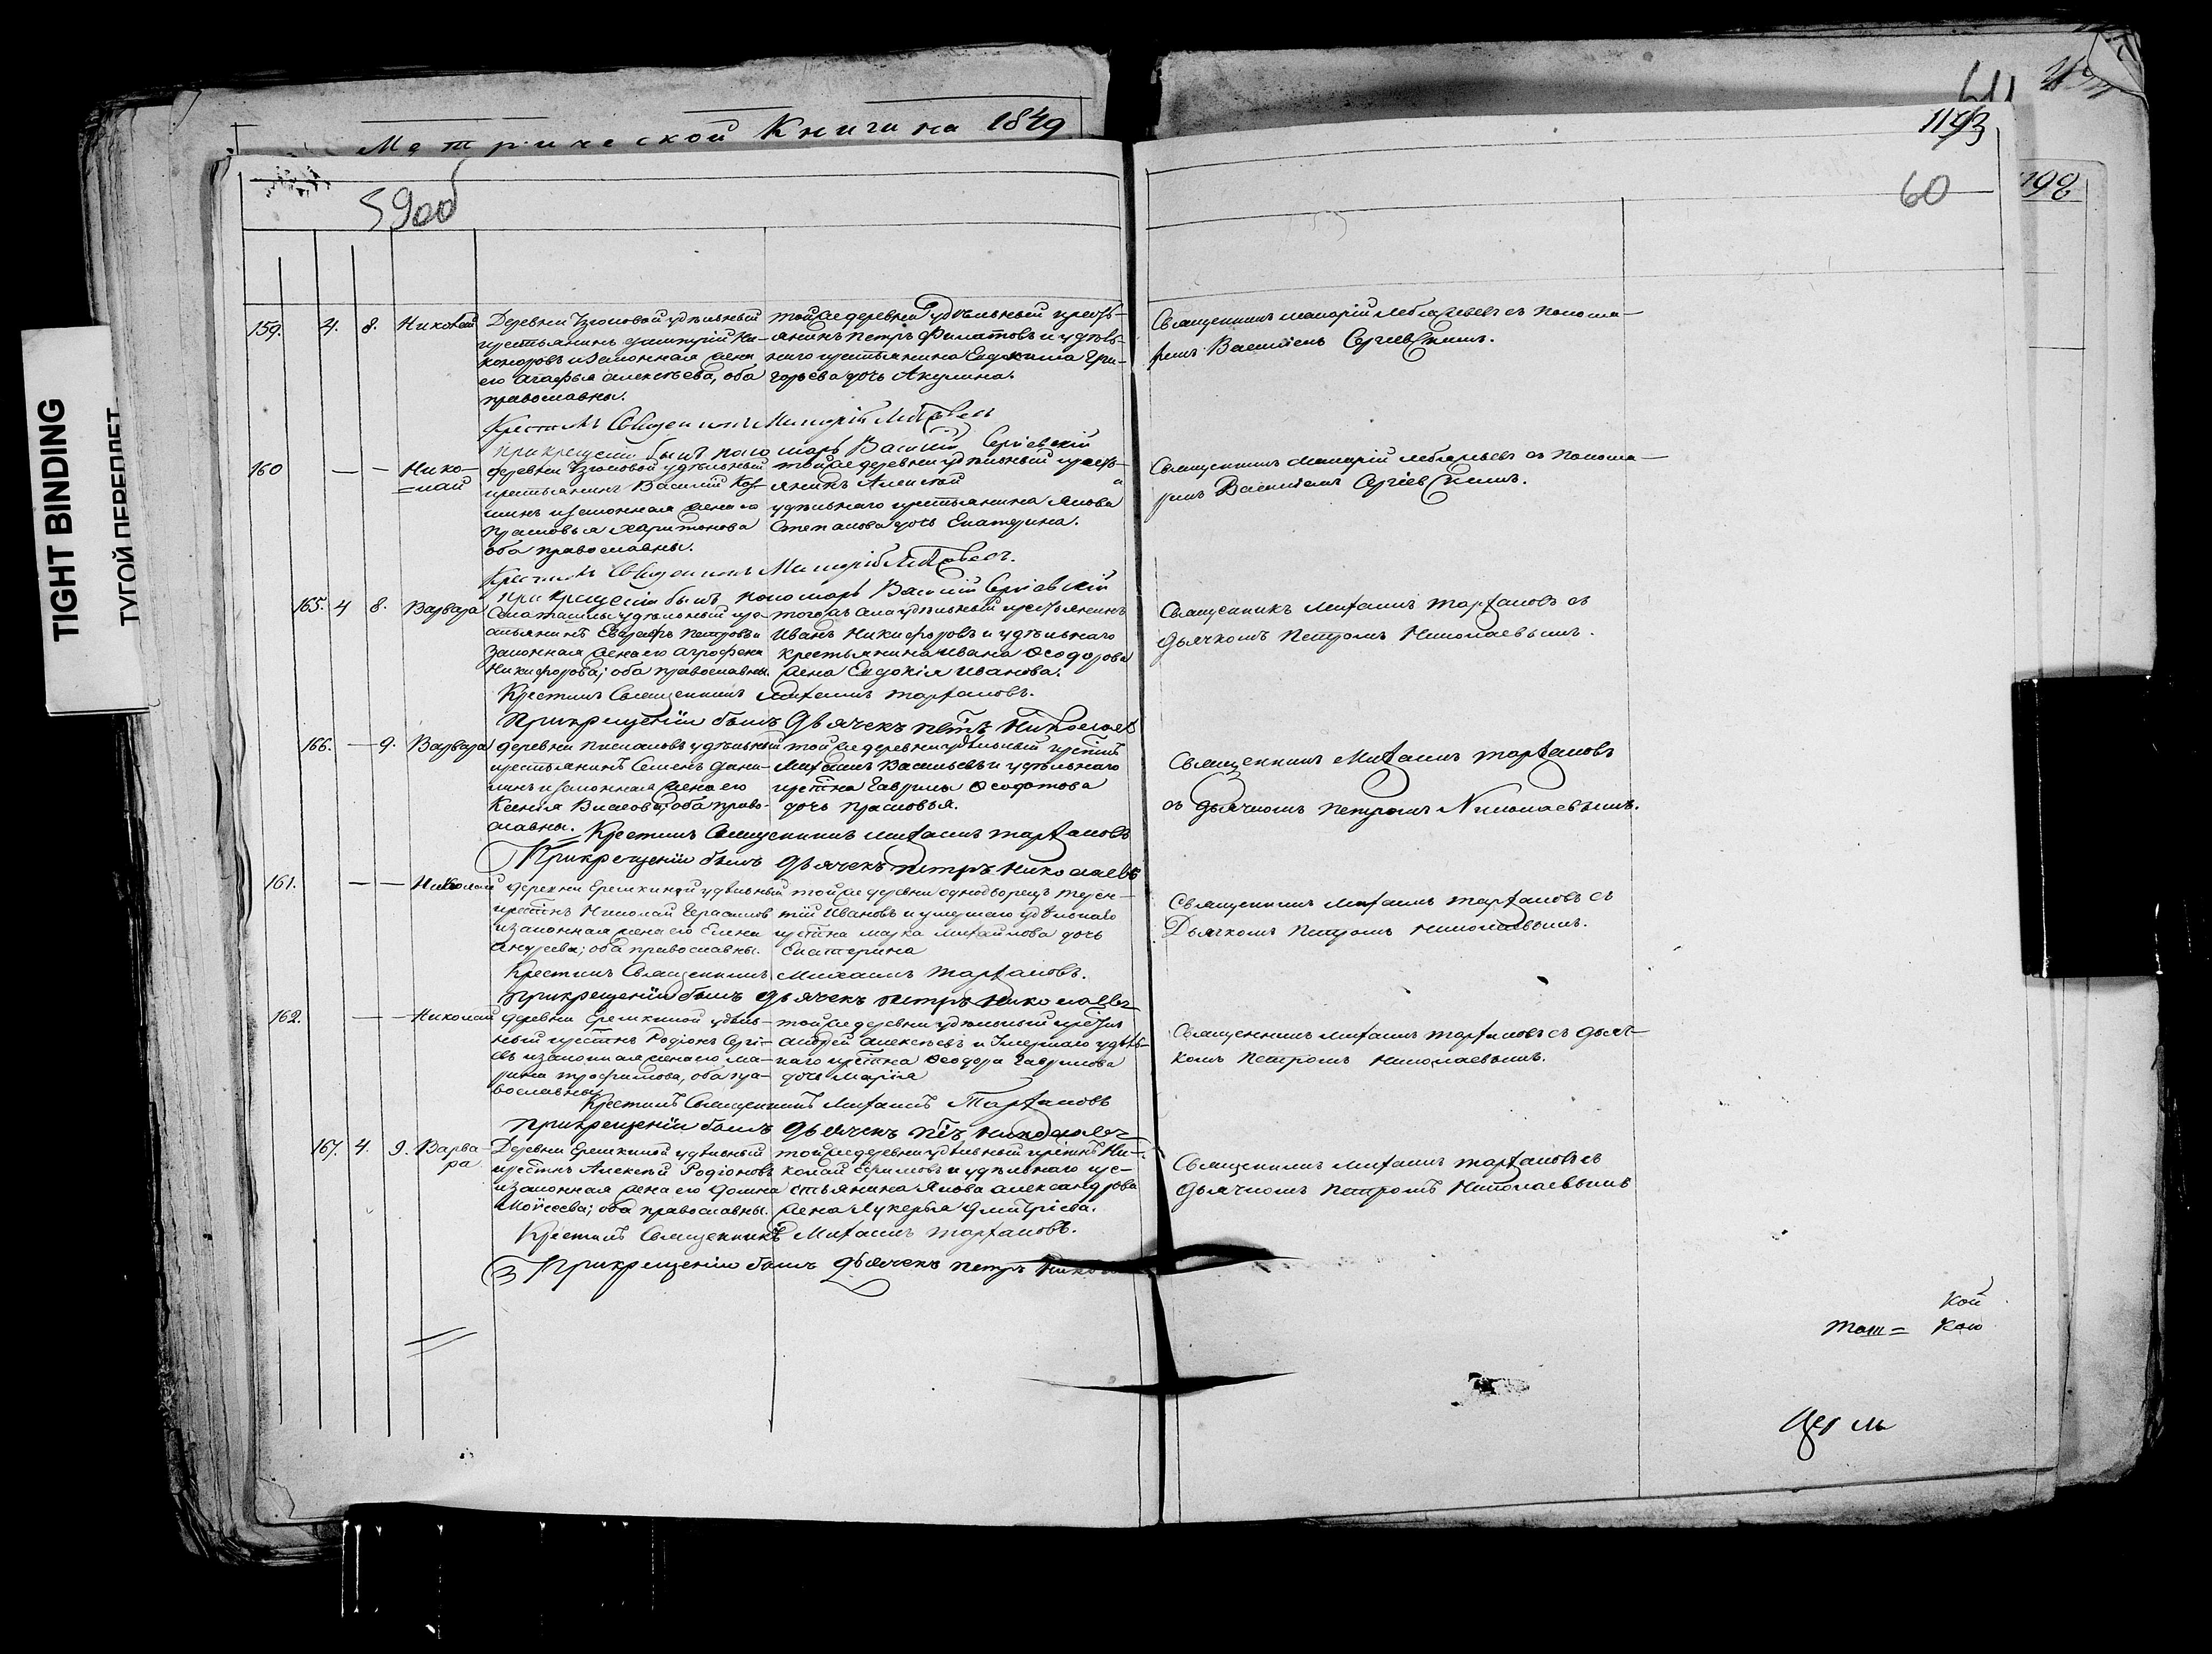 Метрической Книги на 1849
1193
60
59об
198
TIGHT BINDING
ТУГОЙ ПЕРЕПЛЕТ
159. 4. 8. Николай
Деревни удѣльный
крестьянинъ Димитрій Ни-
каноровъ и законная жена
его Агафья Алексѣева, оба
православны.
той же деревни удѣльный кресть-
янинъ Петръ Филатовъ и удѣль-
наго крестьянина Евдокима Гри-
горьева дочь Акулина.
Священникъ Макарій Лебедевъ съ понома-
ремъ Василіемъ Сергіевскимъ.
Крестилъ Священникъ Макарій
При крещеніи былъ пономарь Василій Сергіевскій
160 — — Нико-
=лай
деревни удѣльный
крестьянинъ Василій Коз-
минъ и законная жена его
Прасковья Харитонова
оба православны.
той же деревни удѣльный кресть-
янинъ Алексѣй и
удѣльнаго крестьянина Якова
Степанова дочь Екатерина.
Священникъ Макарій Лебедевъ съ понома-
ремъ Василіемъ Сергіевскимъ.
Крестилъ Священникъ Макарій
При крещеніи былъ пономарь Василій Сергіевскій
165. 4 8. Варвара
Села удѣльный кре-
стьянинъ Евграфъ Петровъ и
законная жена его Агрофена
Никифорова; оба православны.
того жъ села удѣльный крестьянинъ
Иванъ Никифоровъ и удѣльнаго
крестьянина Ивана Ѳеодорова
жена Евдокія Иванова.
Священникъ Михаилъ Тарханов съ
дьячкомъ Петромъ Николаевымъ.
Крестилъ Священникъ Михаилъ Тархановъ.
При крещеніи былъ Дьячекъ Петръ Николаев
166. — 9. Варвара
деревни удѣльный
крестьянинъ Семенъ Дани-
линъ и законная жена его
Ксенія Власова; оба право-
славны.
той же деревни удѣльный крестнъ
Михаилъ Васильевъ и удѣльнаго
крестна Гаврилы Ѳеодотова
дочь Прасковья.
Священникъ Михаилъ Тархановъ
съ дьячкомъ Петромъ Николаевымъ.
Крестилъ Священникъ Михаилъ Тархановъ
При крещеніи былъ Дьячекъ Петръ Николаевъ
161. — — Николай
деревни Ерешкиной удѣльный
крестнъ Николай Герасимов
и законная жена его Елена
Андреева; оба православны.
той же деревни однодворецъ Терен-
тій Ивановъ и умершаго удѣльнаго
крестна Марка Михайлова дочь
Екатерина
Священникъ Михаилъ Тархановъ съ
Дьячкомъ Петромъ Николаевымъ.
Крестилъ Священникъ Михаилъ Тархановъ.
При крещеніи былъ дьячекъ Петръ Николаевъ
162. — — Николай
деревни Ерешкиной удѣль-
ный крестнъ Родіонъ Сергѣ-
евъ и законная жена его Ма-
рина Трофимова, оба пра-
вославны
той же деревни удѣльный крестнъ
Андрей Алексѣевъ и Умершаго удѣль-
наго крестна Ѳеодора Гаврилова
дочь Марія
Священникъ Михаилъ Тархановъ съ дьяч-
комъ Петромъ Николаевымъ.
Крестилъ Священникъ Михаилъ Тархановъ
При крещеніи былъ Дьячекъ Петръ Николаевъ
167. 4. 9. Варва-
ра
Деревни Ерешкиной удѣльный
крестнъ Алексѣй Родіоновъ
и законная жена его Домна
Моѵсеева; оба православны.
той же деревни удѣльный крестнъ Ни-
колай Ефимовъ и удѣльнаго кре-
стьянина Якова Александрова
жена Лукерья Дмитріева.
Священникъ Михаилъ Тархановъ съ
Дьячкомъ Петромъ Николаевымъ
Крестилъ Священникъ Михаилъ Тархановъ.
При крещеніи былъ Дьячекъ Петръ
кой
таш= кою